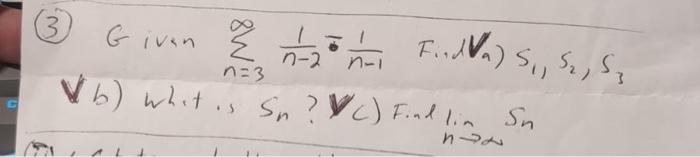 ③ Given ∞∑n=3 1/n-2 - 1/n-1 Find √a) S₁, S₂, S₃
√b) What is Sn ? √c) Find lim n→∞ Sn